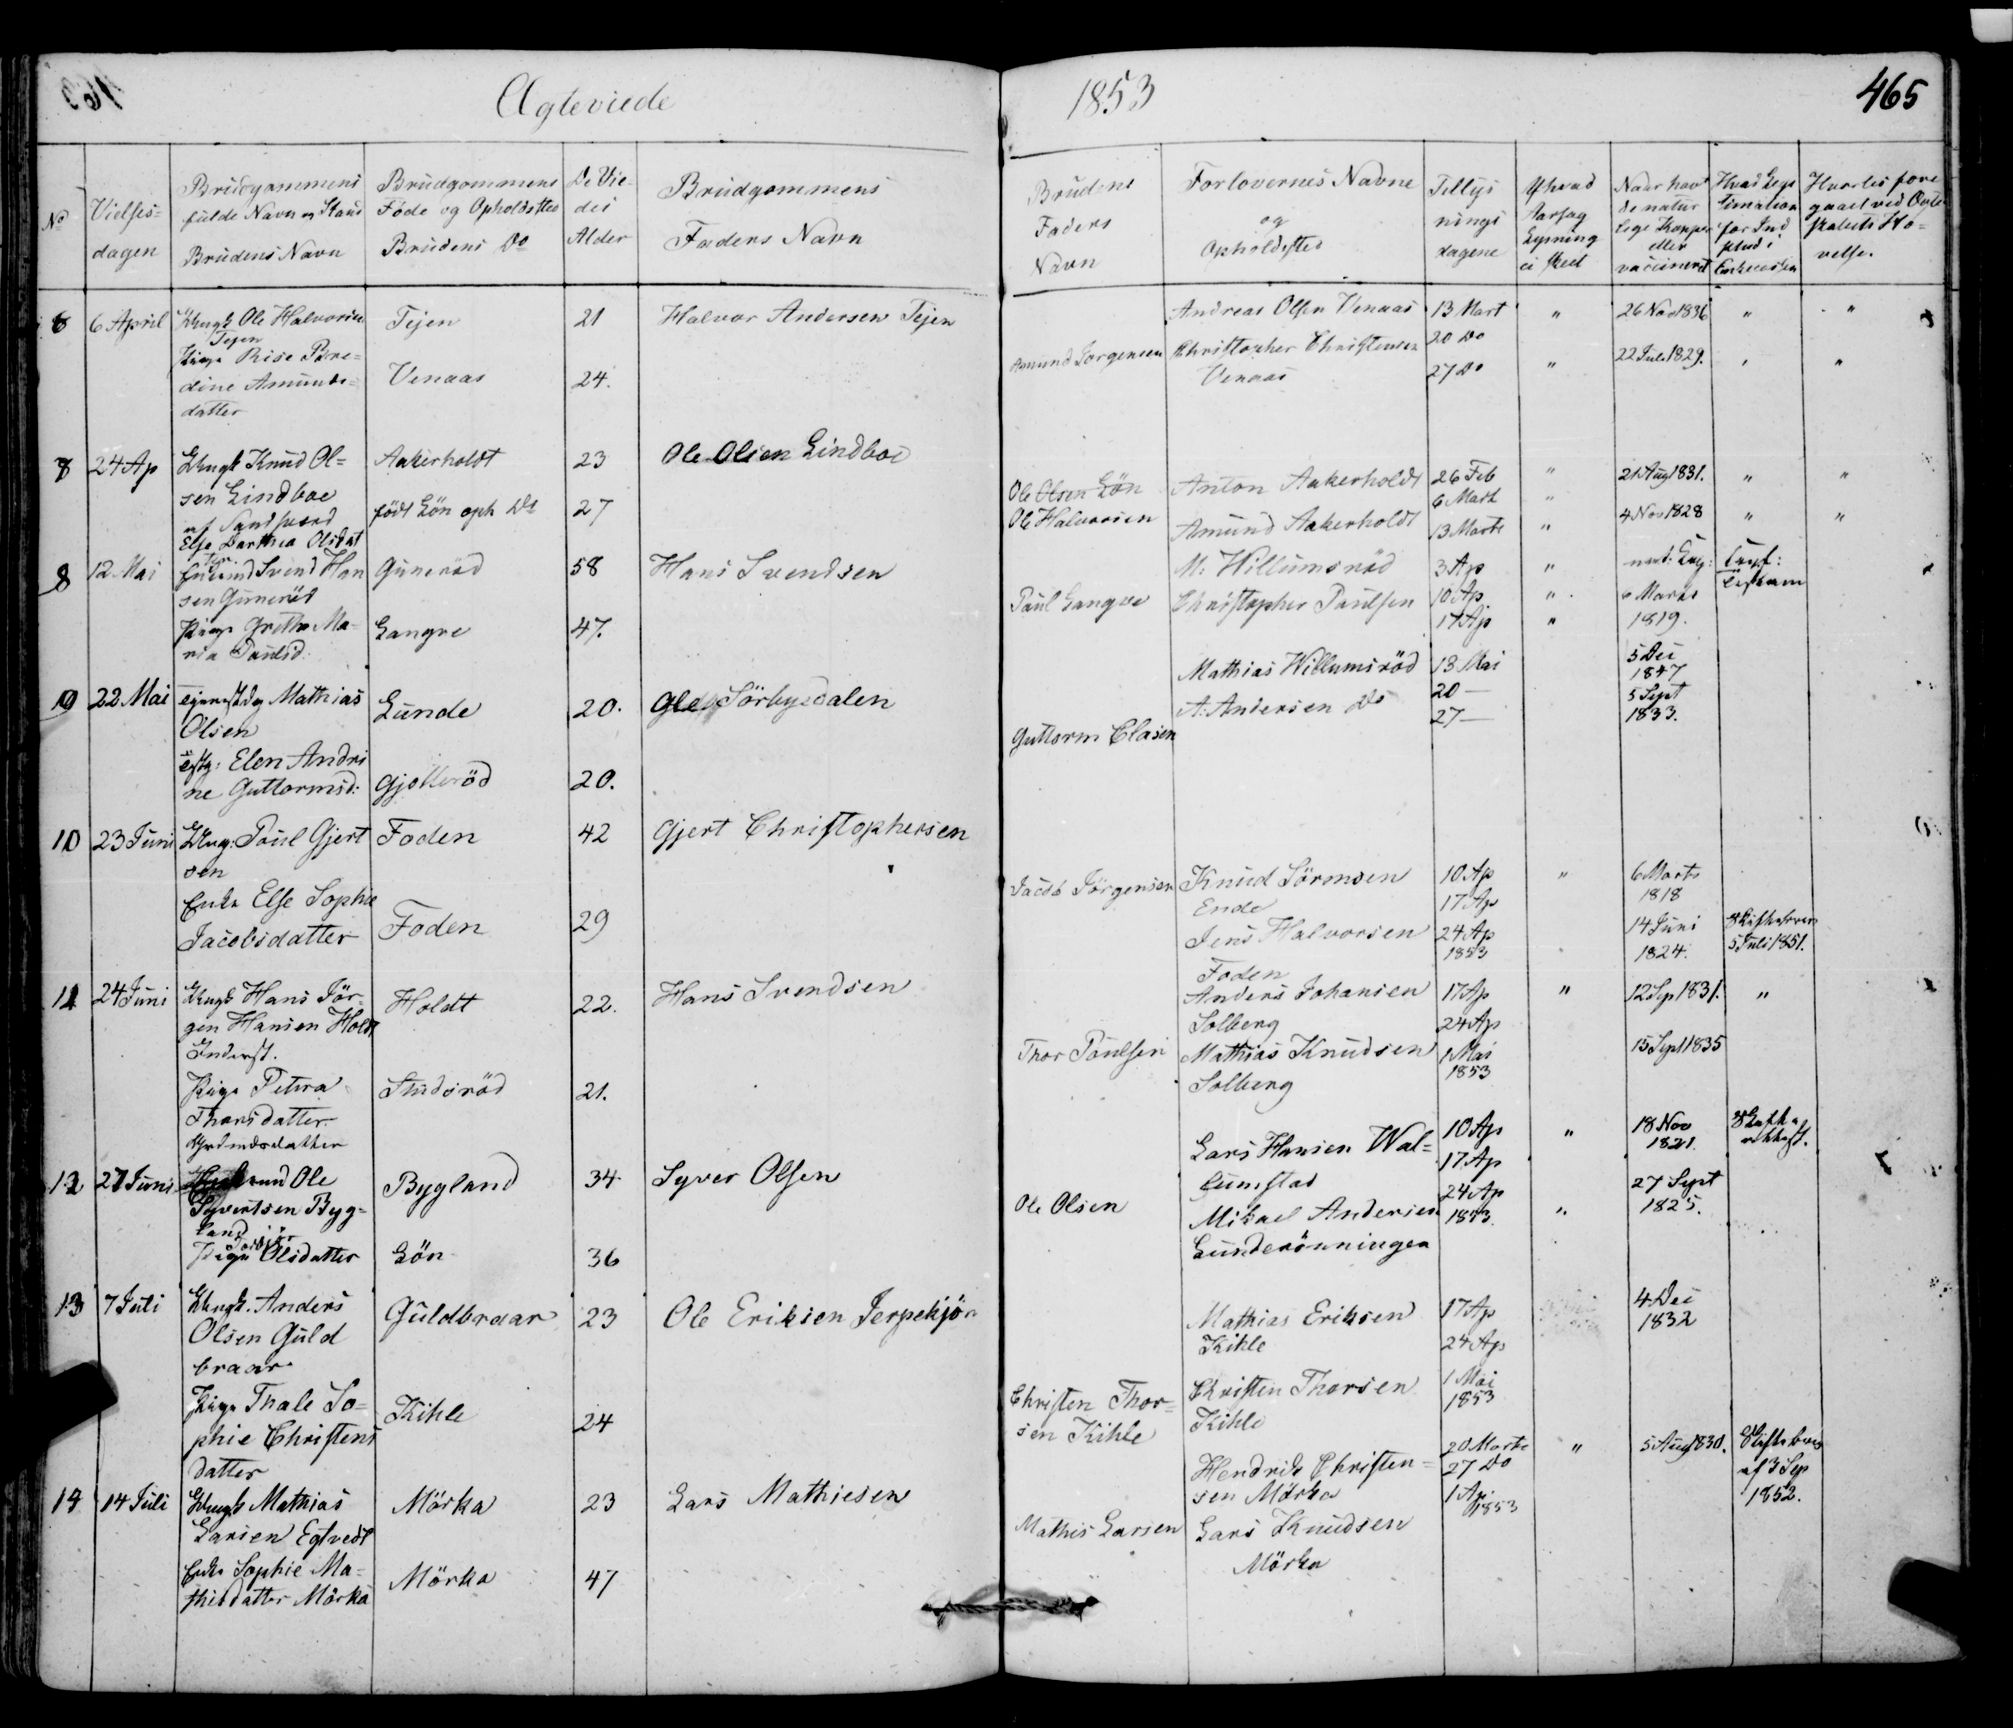 Ægteviede
1853
465
No
Vielses=
dagen
Brudgommens
fulde Navn og Stand
Brudens Navn
Brudgommens
Føde og Opholdssted
Brudens Do
De Vie-
des
Alder
Brudgommens
Faders Navn
Brudens
Faders
Navn
Forlovernes Navne
og
Opholdsted
Tillys
nings
dagene
Af hvad
Aarsag
Lysning
ei skeet
Naar havt
de natur
lige Kopper
eller
vaccineret
8
6 April
Ungk Ole Halvorsen
Tejen
Pige
dine Amunds-
datter
Tejen
Venaas
21
24.
Halvor Andersen Tejen
Amund Jørgensen
Andreas Olsen Venaas
Christopher Christensen
Venaas
13 Mart
20 Do
27 Do
"
"
26 Nov 1836
22 Juli 1829.
"
"
"
"
8
24 Ap
Ungk Knud Ol=
sen Lindboe
Else Dorthea Olsdat
ter
Aakerholdt
født Lön oph Do
23
27
Ole Olsen Lindboe
Ole Olsen Lön
Ole Halvorsen
Anton Aakerholdt
Amund Aakerholdt
26 Feb
6 Mart
13 Marts
"
"
"
21 Aug 1831.
4 Nov 1828
"
"
"
"
8
12 Mai
Svend Han
sen Gunerød
Pige Grethe Ma-
ria Paulsd:
Gunerød
Langre
58
47.
Hans Svendsen
Paul Langre
M: Willumsrød
Christopher Paulsen
3 Ap
10 Ap
17 Ap
"
"
"
6 Marts
1819.
10
22 Mai
Mathias
Olsen
Elen Andri
ne Guttormsd:
Lunde
Gjotterød
20.
20.
Ole Sørbyedalen
Guttorm Clasen
Mathias Willumsröd
A: Andersen Do
13 Mai
20 —
27 —
5 Dec
1847
5 Sept
1833.
10
23 Juni
Ung: Paul Gjert
sen
Enke Else Sophie
Jacobsdatter
Foden
Foden
42
29
Gjert Christophersen
Jacob Jörgensen
Knud Sörensen
Ende
Jens Halvorsen
Foden
10 Ap
17 Ap
24 Ap
1853
"
6 Marts
1818
14 Juni
1824.
Skiftebrev
5 Juli 1851.
11
24 Juni
Ungk Hans Jör-
gen Hansen Holt
Inderst.
Pige Petura
Thorsdatter
Holdt
Studsröd
22.
21.
Hans Svendsen
Thor Poulsen
Anders Johansen
Solberg
Mathias Knudsen
Solberg
17 Ap
24 Ap
1 Mai
1853
"
12 Sep 1831.
15 Sept 1835
"
12
27 Juni
Ole
Syvertsen Byg-
land
Pige Olsdatter
Bygland
Lön
34
36
Syver Olsen
Ole Olsen
Lars Hansen Wal=
lumstad
Mikael Andersen
Lunderönningen
10 Ap
17 Ap
24 Ap
1853.
"
"
18 Nov
1821.
27 Sept
1825.
13
7 Juli
Ungk. Anders
Olsen Guld
braar
Pige Thale So=
phie Christens
datter
Guldbraar
Kihle
23
24
Ole Eriksen Jerpekjön
Christen Thor=
sen Kihle
Mathias Eriksen
Kihle
Christen Thorsen
Kihle
17 Ap
24 Ap
1 Mai
1853
4 Dec
1832
14
14 Juli
Ungk Mathias
Larsen Egtvedt
Enke Sophie Ma=
thisdatter Mörka
Mörka
Mörka
23
47
Lars Mathiesen
Mathis Larsen
Hendrik Christen=
sen Mörka
Lars Knudsen
Mörka
20 Marts
27 Do
1 Ap.
1853
"
5 Aug 1830.
Skiftebrev
af 3 Sep
1852.